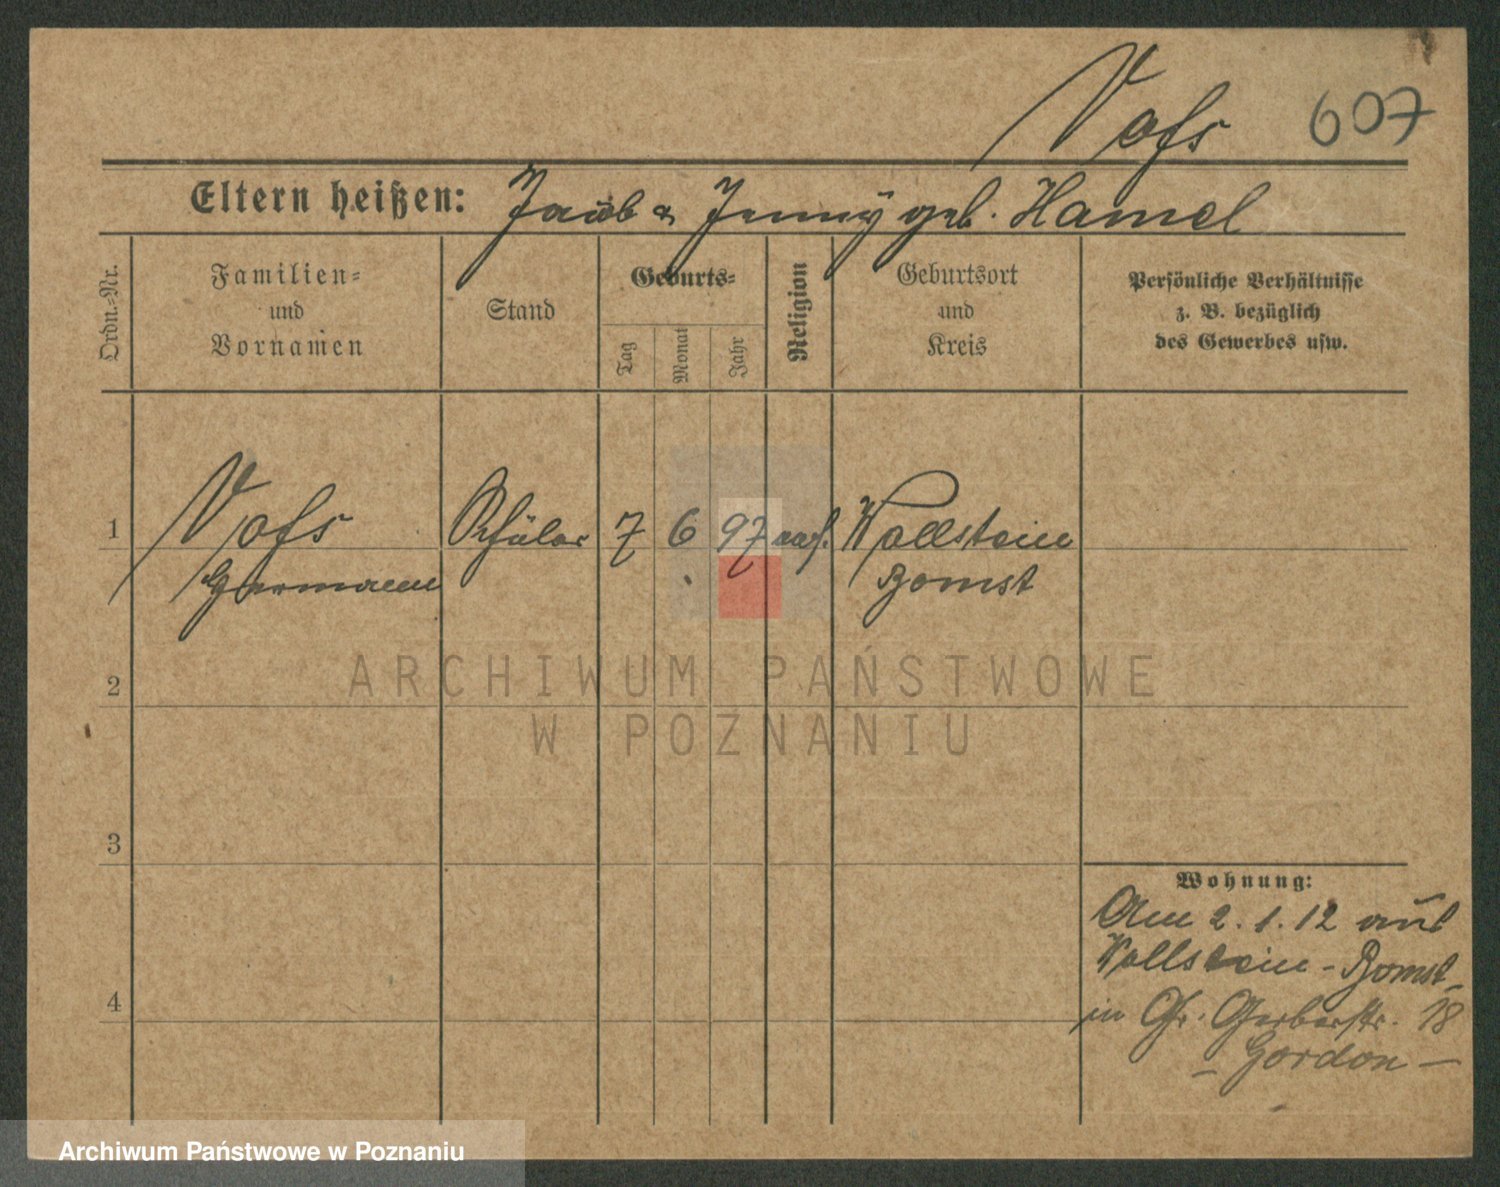 Voß
607
Eltern heißen: Jacob & Jenny geb. Hamel
Ordn.-Nr.
Familien-
und
Vornamen
Stand
Geburts-
Tag
Monat
Jahr
Religion
Geburtsort
und
Kreis
Persönliche Verhältnisse
z. B. bezüglich
des Gewerbes usw.
1
Voß
Hermann
Schüler
7
6
97
Wollstein
Bomst
2
3
4
Wohnung:
Am 2. 1. 12 aus
Wollstein - Bomst
in Gr. Gerberstr. 18
- Gordon -
ARCHIWUM PAŃSTWOWE
W POZNANIU
Archiwum Państwowe w Poznaniu